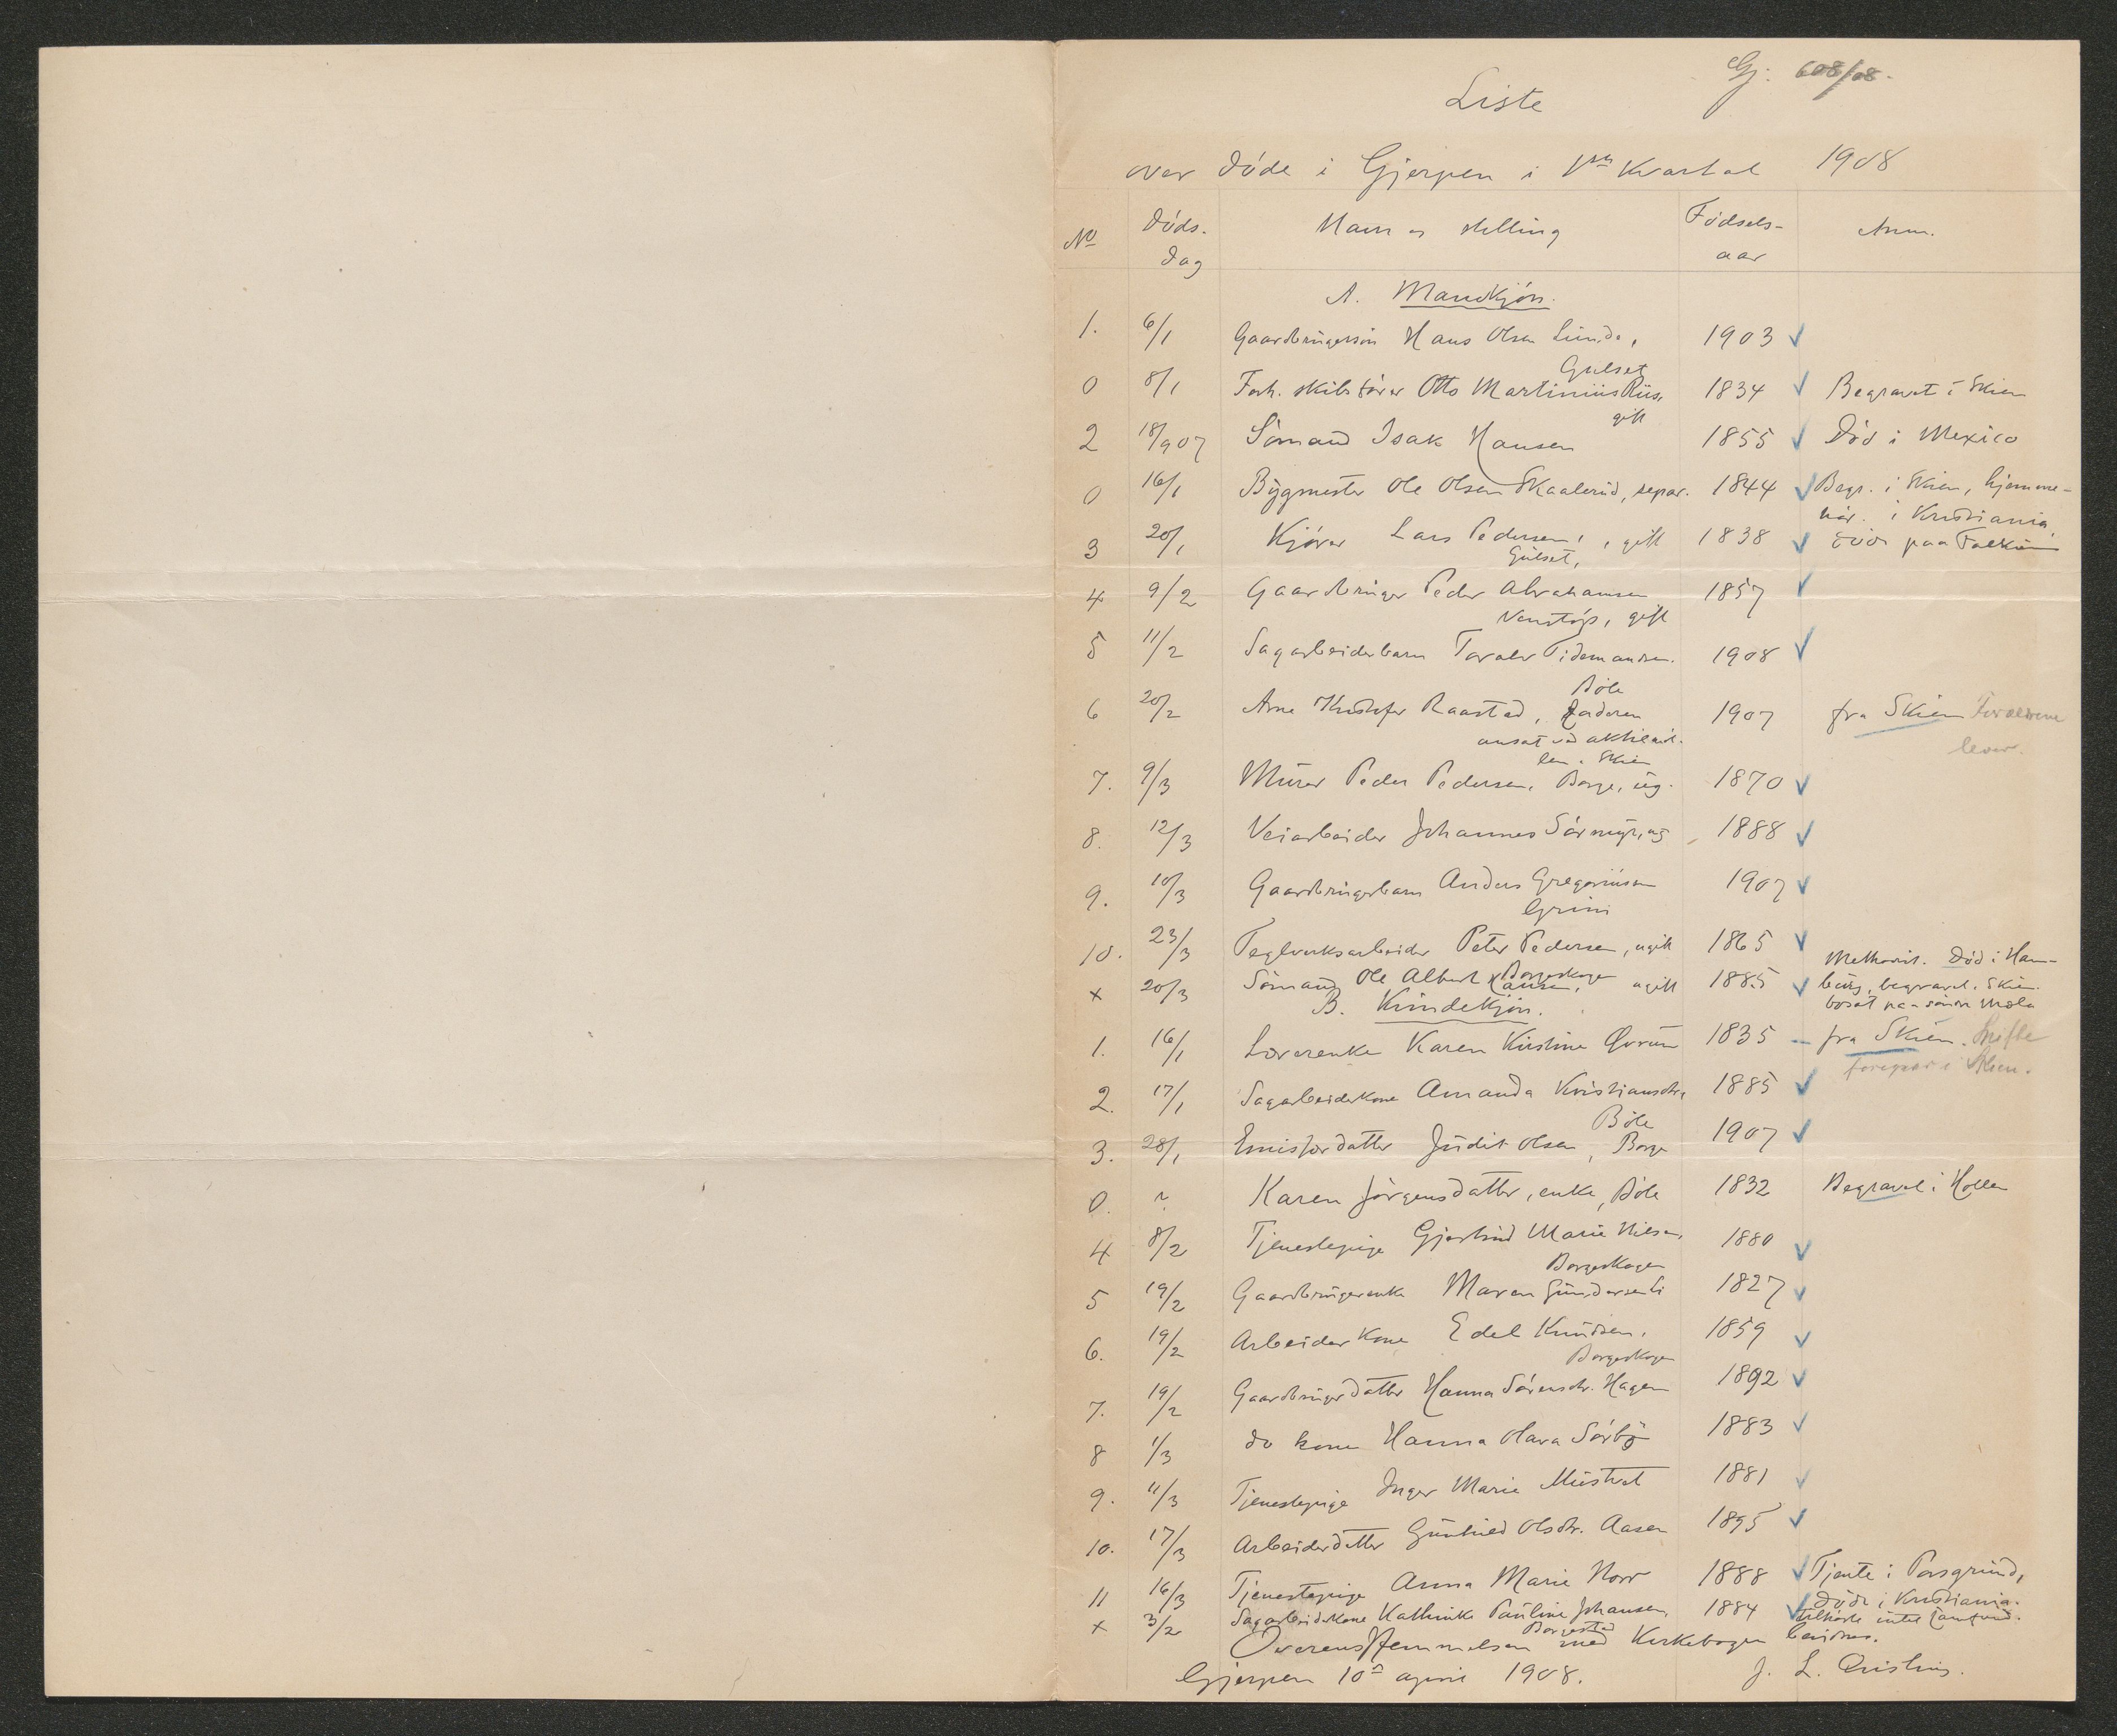 Gj. 608/08.
Liste
over døde i Gjerpen i 1ste Kvartal 1908
No Døds-dag Navn og stilling Fødsels-aar Anm.
A. Mandkjøn.
1. 6/1 Gaardbrugersøn Hans Olsen Lunde, 1903
Gulset
0 8/1 Forh. skibsfører Otto Martinius Riis, 1834 Begravet i Skien
gift
2 18/9 07 Sømand Isak Hansen 1855 Død i Mexico
0 16/1 Bygmester Ole Olsen Skaalerud, separ. 1844 Begr. i Skien, hjemme-
hør. i Kristiania
3 20/1 Kjører Lars Pedersen, gift 1838 Død paa Falkum
Gulset,
4 9/2 Gaardbruger Peder Abrahamsen 1857
Venstøp, gift
5 11/2 Sagarbeiderbarn Toralv Tidemandsen. 1908
Bøle
6 20/2 Arne Kristofer Raastad, faderen 1907 fra Skien Forældrene
ansat ved aktiemøl- lever.
len i Skien
7. 9/3 Murer Peder Pedersen, Borge, ug. 1870
8. 12/3 Veiarbeider Johannes Sørmyr, ug 1888
9. 10/3 Gaardbrugerbarn Anders Gregoriusen 1907
Grini
10. 23/3 Teglverksarbeider Peter Pedersen, ugift 1865
Borgeskogen Methodist. Død i Ham-
x 20/3 Sømand Ole Albert Hansen, ugift 1885 burg, begravet i Skien.
B. Kvindekjøn. bosat paa søndre Mæla
1. 16/1 Loverenke Karen Kirstine Qvrum 1835 – fra Skien. Skifte
foregaar i Skien.
2. 17/1 Sagarbeiderkone Amanda Kristiansdtr, 1885
Bøle
3. 28/1 Emisfordatter Judit Olsen, Borge 1907
0. ? Karen Jørgensdatter, enke, Bøle 1832 Begravet i Hollen
4 8/2 Tjenestepige Gjertrud Marie Nilsen, 1880
Borgeskogen
5 19/2 Gaardbrugerenke Maren Gundersen Li 1827
6. 19/2 Arbeiderkone Edel Knudsen, 1859
Borgeskogen
7. 19/2 Gaardbrugerdatter Hanna Sørensdtr. Hagen 1892
8 1/3 do kone Hanna Olava Sørbø 1883
9. 11/3 Tjenestepige Inger Marie Mustvet 1881
10. 17/3 Arbeiderdatter Gunhild Olsdtr. Aasen 1895
11 16/3 Tjenestepige Anna Marie Norr 1888 Tjente i Porsgrund,
døde i Kristiania.
x 3/2 Sagarbeiderkone Kathinka Pauline Johansen, 1884 tilhørte intet samfund.
Borgestad
Overensstemmelsen med Kirkebogen bevidnes.
Gjerpen 10de april 1908. J. L. Qvisling.